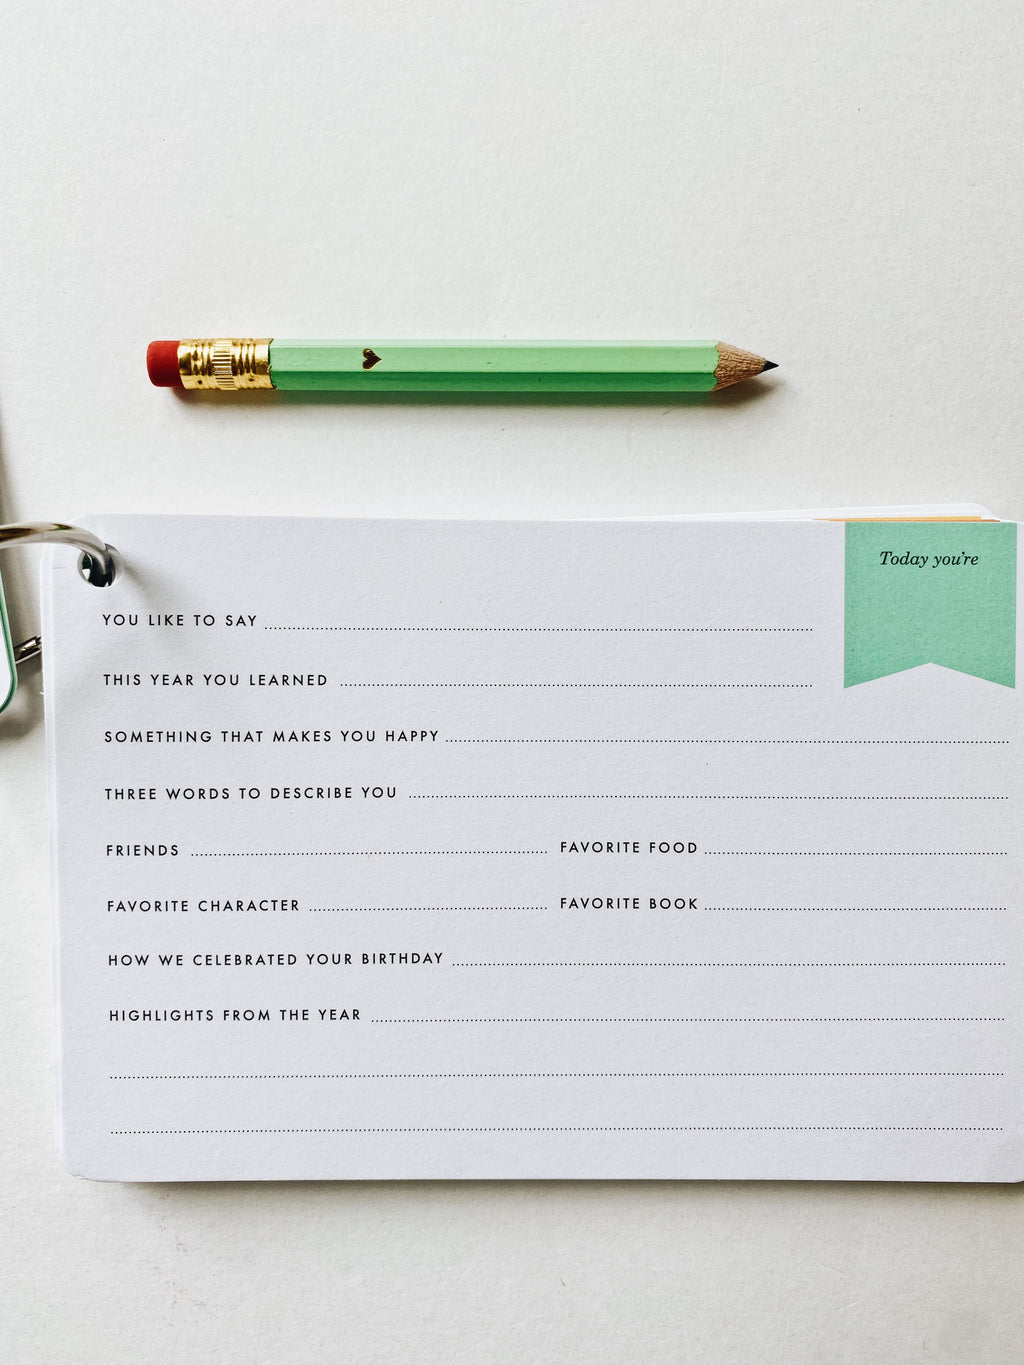 Today you're
YOU LIKE TO SAY
THIS YEAR YOU LEARNED
SOMETHING THAT MAKES YOU HAPPY
THREE WORDS TO DESCRIBE YOU
FRIENDS FAVORITE FOOD
FAVORITE CHARACTER FAVORITE BOOK
HOW WE CELEBRATED YOUR BIRTHDAY
HIGHLIGHTS FROM THE YEAR